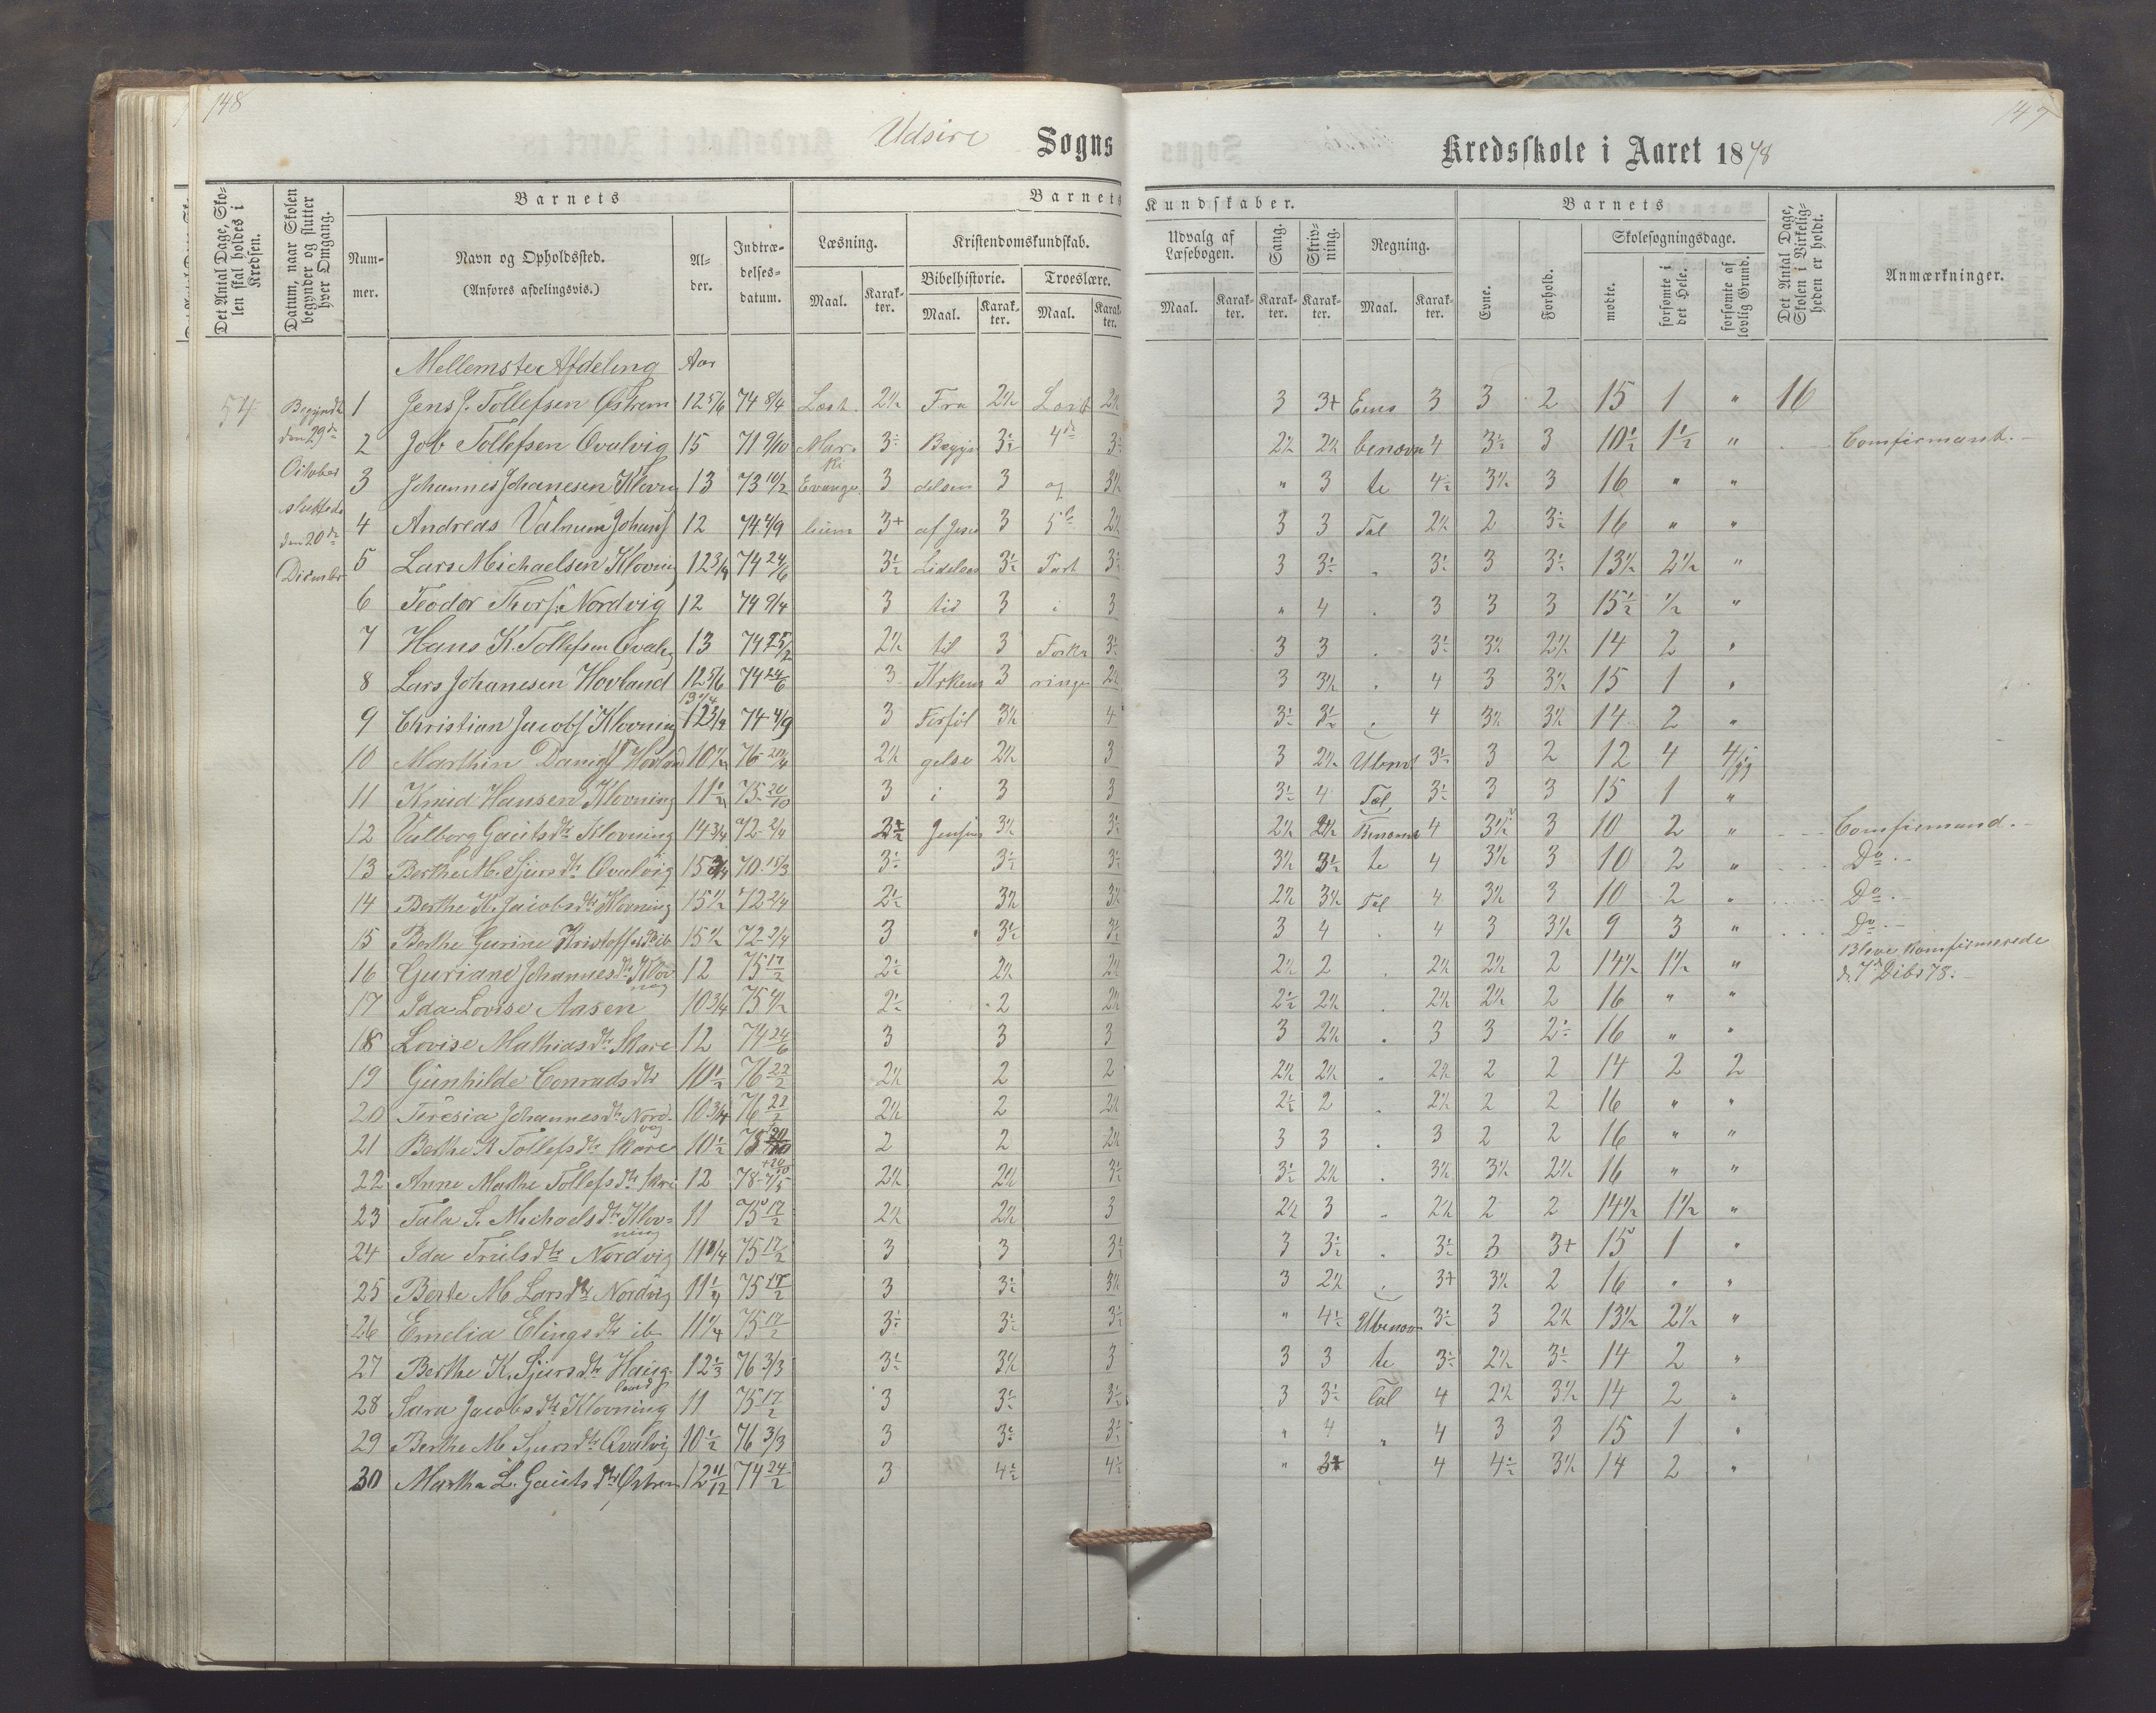 148
147
Udsire Sogns Kredsskole i Aaret 1878
Det Antal Dage, Skolen skal holdes i Kredsen.
Datum, naar Skolen begynder og slutter hver Omgang.
Barnets
Nummer.
Navn og Opholdssted.
(Anføres afdelingsvis.)
Alder.
Indtrædelsesdatum.
Barnets Kundskaber.
Læsning.
Kristendomskundskab.
Bibelhistorie.
Troeslære.
Maal.
Karakter.
Maal.
Karakter.
Maal.
Karakter.
Udvalg af Læsebogen.
Maal.
Karakter.
Sang.
Karakter.
Skrivning.
Karakter.
Regning.
Maal.
Karakter.
Barnets
Evne.
Forhold.
Skolesøgningsdage.
mødte.
forsømte i det Hele.
forsømte af lovlig Grund.
Det Antal Dage, Skolen i Virkeligheden er holdt.
Anmærkninger.
Mellemste Afdeling Aar
54
Begyndte
den 29de
October
sluttede
den 20de
1 Jens J. Tollefsen Østrem 12 5/6 74 8/4 2½ Fra 2½ 3 3+ Eens 3 3 2 15 1 " 16
2 Job Tollefsen Qvalvig 15 71 9/10 Mar. 3½ Begyn 3½ 4de 3½ 2½ 2½ benævn 4 3½ 3 10½ 1½ " Comfirmant.
3 Johannes Johanesen Klovni 13 73 10/2 Evange 3 delsen 3 og 3½ " 3 te 4½ 3½ 3 16 " "
4 Andreas Valnum Johans 12 74 4/9 lium 3+ af Jesu 3 5te 2½ 3 3 Tal 2½ 2 3½ 16 " "
5 Lars Michaelsen Klovnig 12 3/4 74 24/6 3½ Lidelses 3½ Part 3½ 3 3½ " 3½ 3 3½ 13½ 2½ "
6 Teodor Thors. Nordvig 12 74 9/4 3 tid 3 i 3 " 4 . 3 3 3 15½ ½ "
7 Hans K. Tollefsen Qvalvg 13 74 25/2 2½ til 3 Forkla 3½ 3 3 . 3½ 3½ 2½ 14 2 "
8 Lars Johanesen Hovland 12 5/6 74 24/6 3 Kirkens 3 ringen 2½ 3 3½ . 4 3 3½ 15 1 "
9 Christian Jacobs Klovning 12 3/4 74 4/9 3 Forføl 3½ 4 3½ 3½ 4 3½ 3½ 14 2 "
10 Marthin Daniels Hovland 10½ 76 2½ gelse 2½ 3 3 2½ 3½ 3 2 12 4 4/syg
11 Knud Hansen Klovning 11½ 75 20/10 3 i 3 3 3½ 4 Tal 3½ 3 3 15 1 "
12 Valborg Gautsdtr Klovning 14 3/4 72 2/4 3½ 3½ 3½ 2½ 2½ Benævn 4 3½ 3 10 2 " Comfirmand.
13 Berthe M. Sjursdtr Qvalvig 15 3/4 70 15/3 3½ 3½ 3½ 3½ 3½ te 4 3½ 3 10 2 " Do
14 Berthe K. Jacobsdtr Klovning 15½ 72 2/4 2½ 3½ 3½ 2½ 3½ Tal 4 3½ 3 10 2 " Do
15 Berthe Gurine Kristoffersdtr ib 15½ 72 2/4 3 3½ 3½ 3 4 . 4 3 3½ 9 3 " Do
16 Guriane Johannesdtr Klovning 12 75 17/2 2½ 2½ 2½ 2½ 2 . 2½ 2½ 2 14½ 1½ " Bleve Komfirmerede
d. 7de Dcbr 78.
17 Ida Lovise Aasen 10 3/4 75 2½ 2 2½ 2½ 2½ . 2½ 2½ 2 16 " "
18 Lovise Mathiasdtr Skare 12 74 24/6 3 3 3 3 2½ . 3 3 2½ 16 " "
19 Gunhilde Conradsdtr 10½ 76 22/2 2½ 2 2 2½ 2½ . 2½ 2 2 14 2 2
20 Teresia Johannesdtr Nordvig 10 3/4 76 22/2 2½ 2 2½ 2½ 2 . 2½ 2 2 16 " "
21 Berthe A Tollefsdtr Skare 10½ 75 2 2 2½ 3 3 . 3 2 2 16 " "
22 Anne Marthe Tollefsdtr Skare 12 78 2½ 2½ 3½ 3½ 2½ . 3½ 3½ 2½ 16 " "
23 Tala S. Michaelsdtr Klovning 11 75 17/2 2½ 2½ 3 2½ 3 . 2½ 2 2 14½ 1½ "
24 Ida Trulsdtr Nordvig 11 1/4 75 17/2 3 3 3½ 3 3½ . 3½ 3 3+ 15 1 "
25 Berte M Larsdtr Nordvig 11 75 17/2 3 3½ 3½ 3 2½ 3+ 3½ 2 16 " "
26 Emelia Elingsdtr ib 11 1/4 75 17/2 3½ 3½ 3½ " 4½ Ubenævn 3½ 3 2½ 13½ 2½ "
27 Berthe K. Sjursdtr Haugland 12 1/3 76 3/3 3½ 3½ 3 3 3 te 3½ 2½ 3½ 14 2 "
28 Sara Jacobsdtr Klovning 11 75 17/2 3 3½ 3½ 3 3½ Tal 4 2½ 3½ 14 2 "
29 Berthe M Sjursdtr Qvalvig 10½ 76 3/3 3 3½ 3½ " 4 " 4 3 3 15 1 "
30 Martha L. Gautsdtr Østrem 12 11/12 74 24/2 3 4½ 4½ " 3+ 4 4½ 3½ 14 2 "